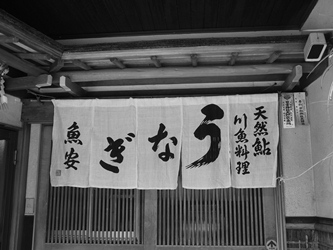 天然鮎
川魚料理
うなぎ
魚安